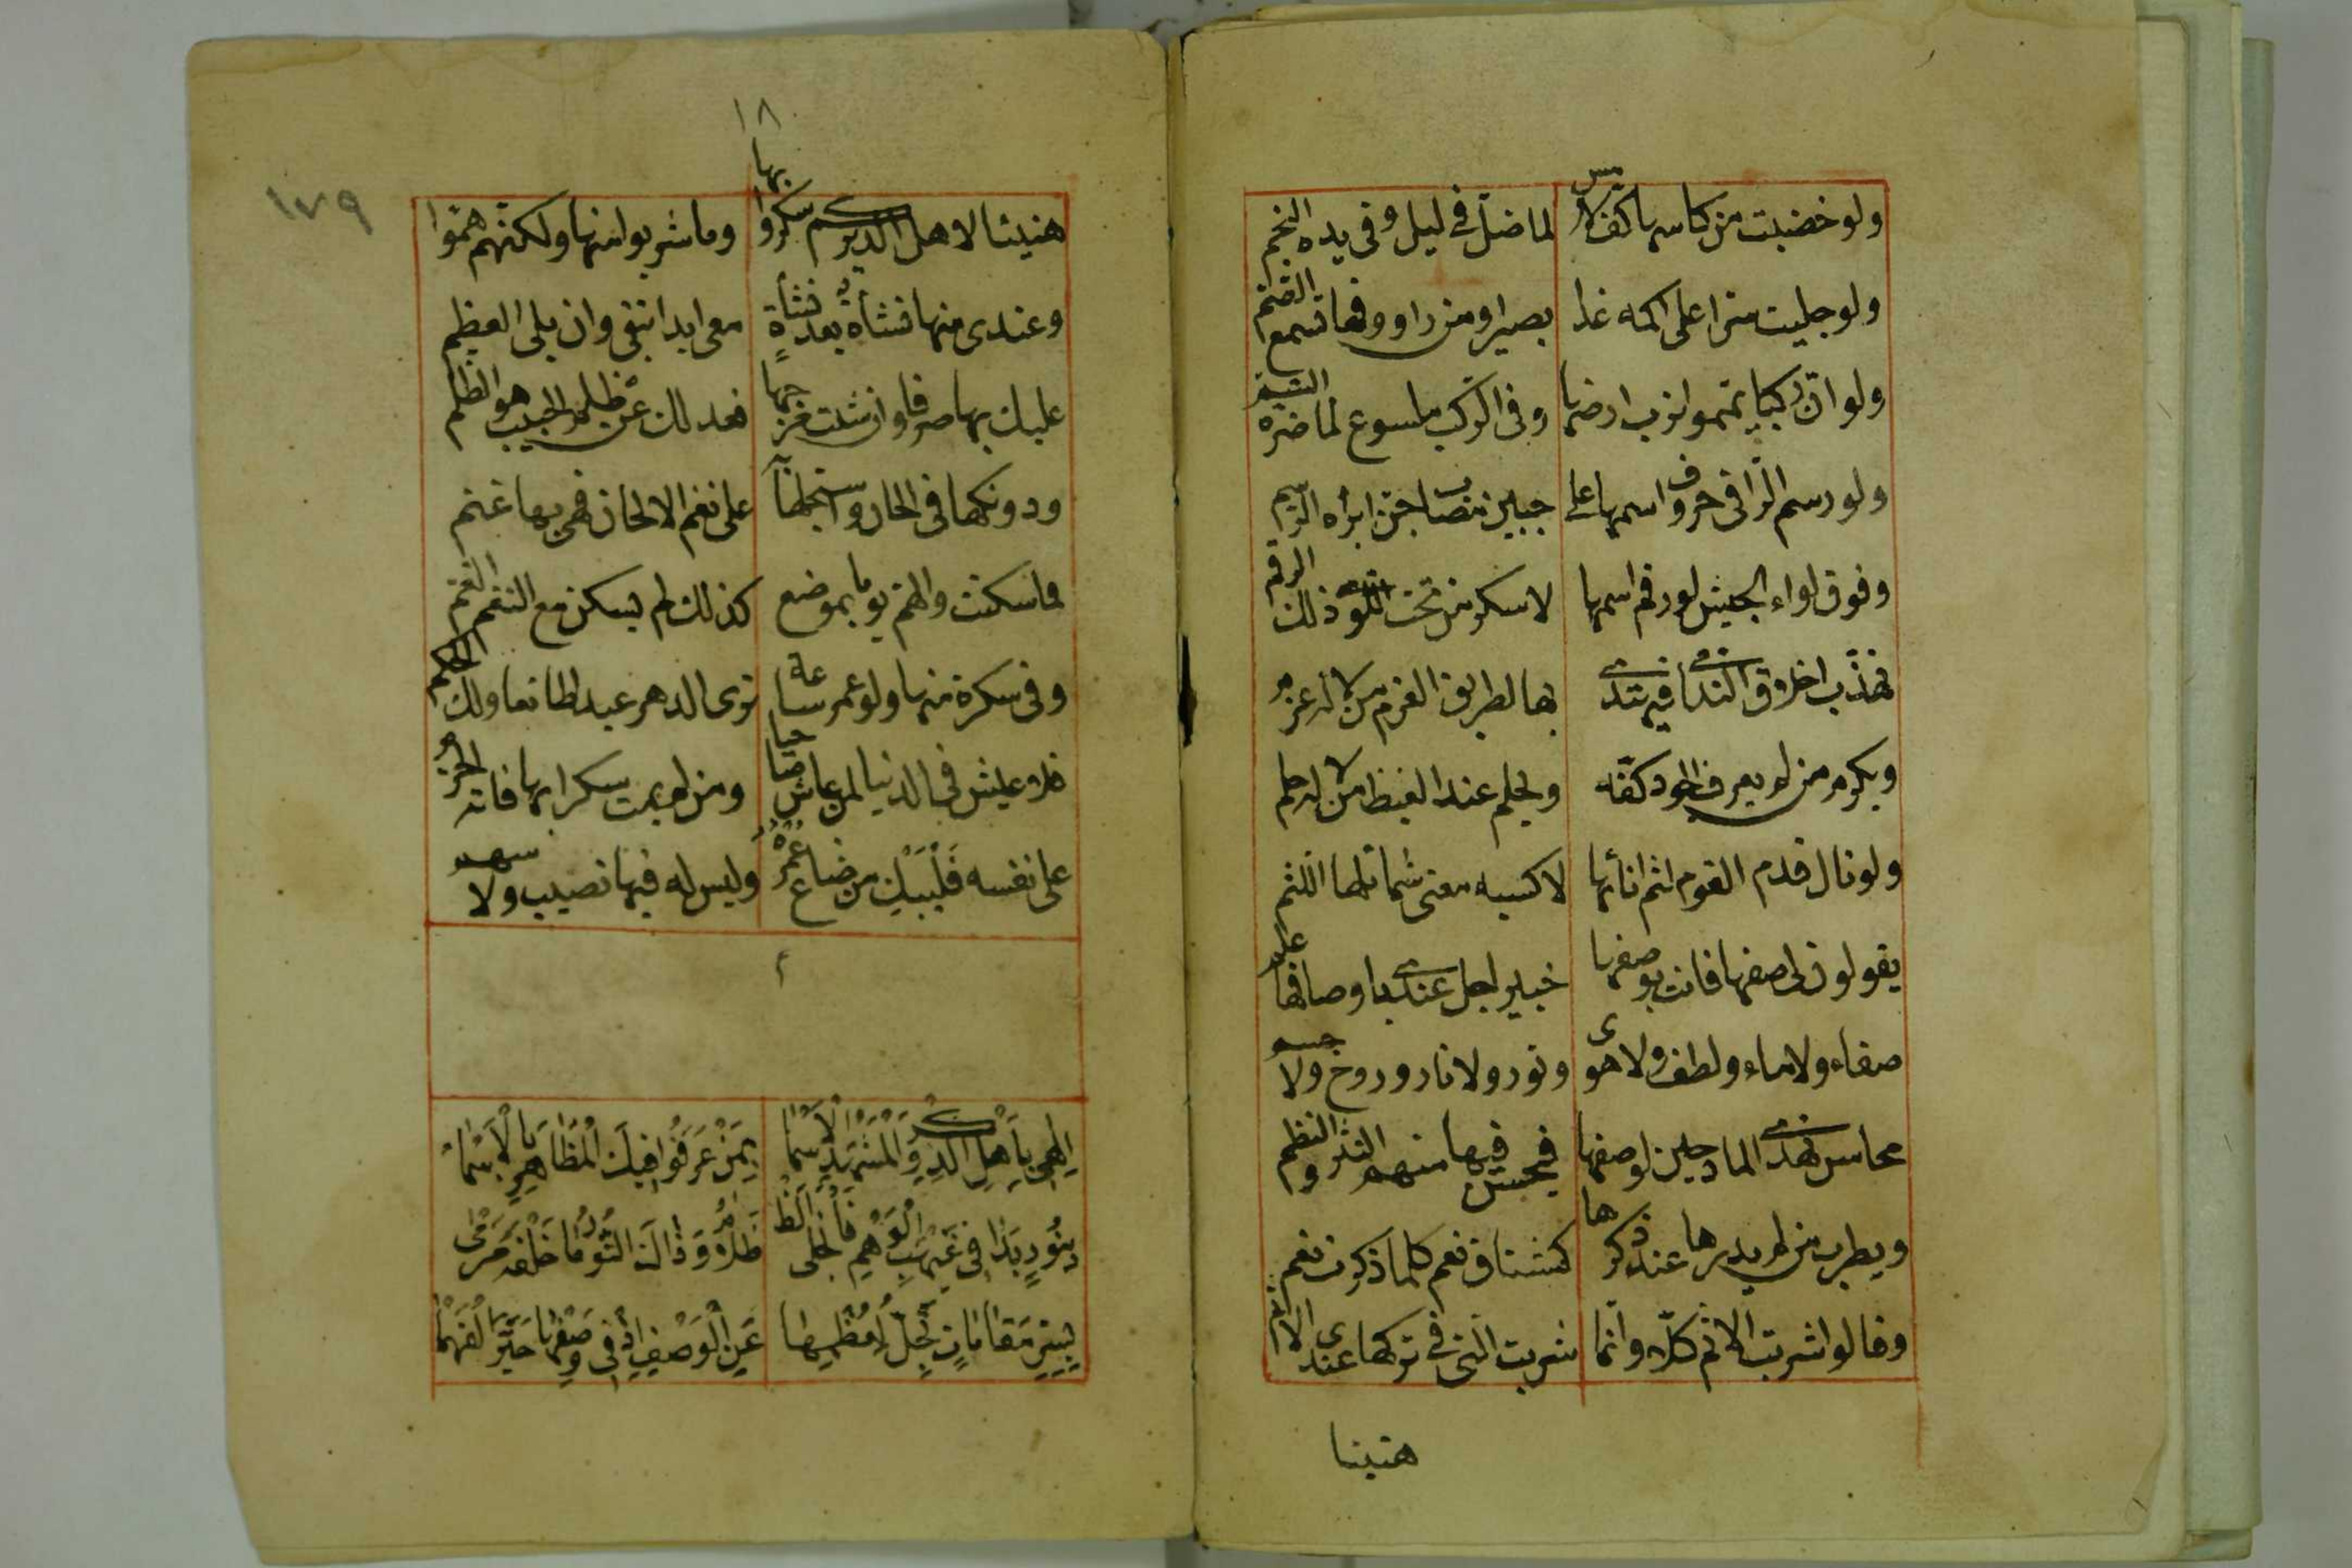 ولو خضبت من كاسها كف لامس لما ضل في ليل وفى يده النجم
ولو جليت سرا على اكمه غدا بصيرا ومن راووقها تسمع الصم
ولو ان ركبا يمموا ترب ارضها وفى الركب ملسوع لما ضره السم
ولو رسم الراقى حروف اسمها على جبين مصاب جن ابراه الرسم
وفوق لواء الجيش لو رقم اسمها لاسكر من تحت اللوى ذلك الرقم
تهذب اخلاق الندامى فيهتدى بها لطريق العزم من لا له عزم
ويكرم من لم يعرف الجود كفه ويحلم عند الغيظ من لا له حلم
ولو نال فدم القوم لثم لثامها لاكسبه معنى شمائلها اللثم
يقولون لى صفها فانت بوصفها خبير اجل عندى باوصافها علم
صفاء ولا ماء ولطف ولا هوى ونور ولا نار وروح ولا جسم
محاسن تهدى المادحين لوصفها فيحسن فيها منهم النثر والنظم
ويطرب من لم يدرها عند ذكرها كمشتاق نعم كلما ذكرت نعم
وقالوا شربت الاثم كلا وانما شربت التى في تركها عندى الاثم
هنيئا
١٨
١٧٩
هنيئا لاهل الدير كم سكروا بها وما شربوا منها ولكنهم هموا
وعندى منها نشأة بعد نشأة معى ابدا تبقى وان بلى العظم
عليك بها صرفا وان شئت مزجها فعدلك عن ظلم الحبيب هو الظلم
ودونكها فى الحان واستجلها على نغم الالحان فهى بها غنم
فما سكنت والهم يوما بموضع كذلك لم يسكن مع النغم الغم
وفى سكرة منها ولو عمر ساعة ترى الدهر عبدا طائعا ولك الحكم
فلا عيش فى الدنيا لمن عاش صاحيا ومن لم يمت سكرا بها فاته الحزم
على نفسه فليبك من ضاع عمره وليس له فيها نصيب ولا سهم
م
الهى باهل الذكر والمشهد الاسما بمن عرفوا فيك المظاهر بالاسما
بنور بدا فى غيهب الوهم فانجلى